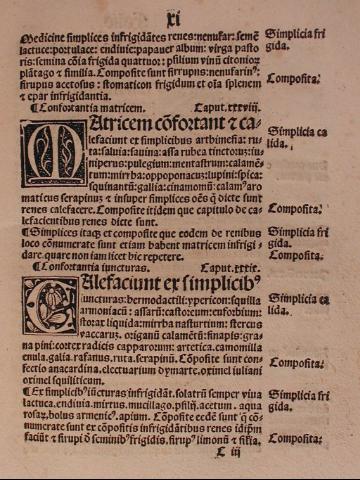 xi
Medicine simplices infrigidātes renes: nenufar: semē
lactuce: portulace: endiuie: papauer album: virga pasto
ris: semina cōia frigida quattuor: psilium vinū citonior
plātago & similia. Composite sunt sirrupus: nenufarinꝰ:
sirupus acetosus: stomaticon frigidum et oīa splenem
et epar infrigidantia.
Simplicia fri
gida.
Composita:
¶ Confortantia matricem. Caput. xxxviij.
MAtricem cōfortant & ca-
lefaciunt ex simplicibus arthimesia: ru-
ta: saluia: sauina: assa rubea tinctorus: iu-
niperus: pulegium: mentastrum: calamē-
tum: mirrha: oppoponacus: lupini: spica:
squinantū: gallia: cinamomū: calamꝰ aro
maticus serapinuꝫ & insuper simplices oēs q̄ dicte sunt
renes calefacere. Composite itidem que capitulo de ca-
lefacientibus renes dicte sunt.
Simplicia ca
lida.
Composita:
¶ Simplices itaqꝫ et composite que eodem de renibus
loco cōnumerate sunt etiam habent matricem infrigi-
dare. quare non iam licet hic repetere.
Simplicia fri
gida.
Composita.
¶ Confortantia iuncturas. Caput. xxxix.
CAlefaciunt ex simplicibꝰ
iuncturas: hermodactili: ypericon: squilla
armoniacū: assarū: castoreum: euforbium:
storax liquida: mirrha nasturtium: stercus
vaccarum: origanū calamētū: sinapis: gra-
na pini: cortex radicis capparorum: artetica. camomilla
enula. galia. rafanus. ruta. serapinū. Cōposite sunt con-
fectio anacardina. electuarium dymarte. oximel iuliani
oximel squiliticum.
Simplicia ca
lida.
Composita:
¶ Ex simplicibꝰ iūcturas infrigidāt. solatrū semper viua
lactuca. endiuia. mirtus. mucillago. psilij. acetum. aqua
rosaꝝ. bolus armenicꝰ. apium. Composite eedē sunt q̄ cō-
numerate sunt ex cōpositis infrigidātibus renes idīpm
faciūt & sirupi ō seminibꝰ frigidis. sirupꝰ limonū & silia.
Simplicia fri
gida.
Composita:
C iij